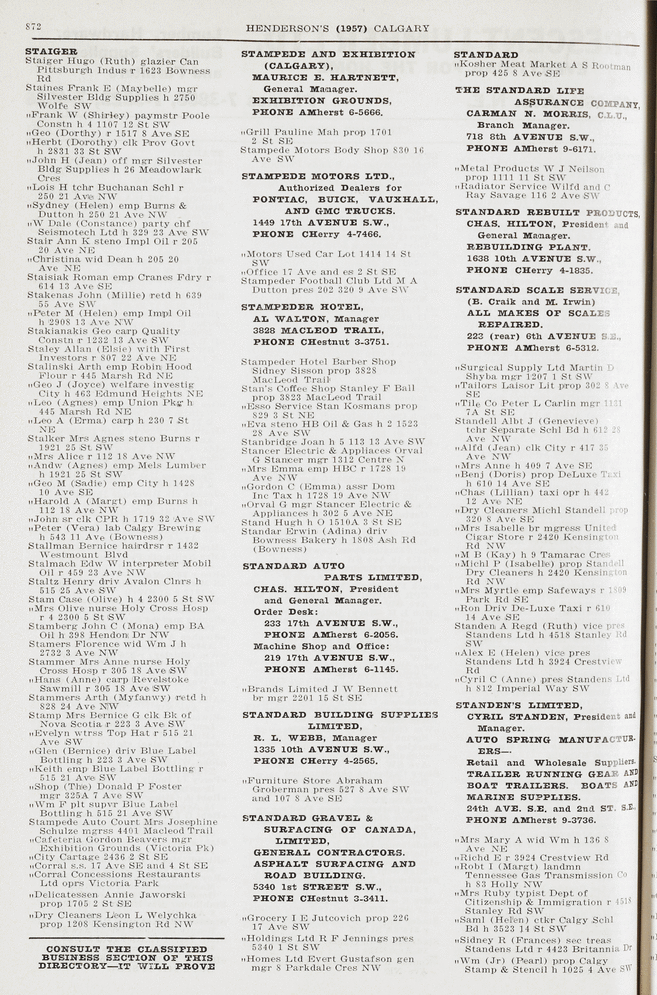 872
HENDERSON'S (1957) CALGARY
STAIGER
Staiger Hugo (Ruth) glazier Can
Pittsburgh Indus r 1623 Bowness
Rd
Staines Frank E (Maybelle) mgr
Silvester Bldg Supplies h 2750
Wolfe SW
"Frank W (Shirley) paymstr Poole
Constn h 4 1107 12 St SW
"Geo (Dorthy) r 1517 8 Ave SE
"Herbt (Dorothy) clk Prov Govt
h 2831 33 St SW
"John H (Jean) off mgr Silvester
Bldg Supplies h 26 Meadowlark
Cres
"Lois H tchr Buchanan Schl r
250 21 Ave NW
"Sydney (Helen) emp Burns &
Dutton h 250 21 Ave NW
"W Dale (Constance) party chf
Seismotech Ltd h 329 23 Ave SW
Stair Ann K steno Impl Oil r 205
20 Ave NE
"Christina wid Dean h 205 20
Ave NE
Staisiak Roman emp Cranes Fdry r
614 13 Ave SE
Stakenas John (Millie) retd h 639
55 Ave SW
"Peter M (Helen) emp Impl Oil
h 2908 13 Ave NW
Stakianakis Geo carp Quality
Constn r 1232 13 Ave SW
Staley Allan (Elsie) with First
Investors r 807 22 Ave NE
Stalinski Arth emp Robin Hood
Flour r 445 Marsh Rd NE
"Geo J (Joyce) welfare investig
City h 463 Edmund Heights NE
"Leo (Agnes) emp Union Pkg h
445 Marsh Rd NE
"Leo A (Erma) carp h 230 7 St
NE
Stalker Mrs Agnes steno Burns r
1921 25 St SW
"Mrs Alice r 112 18 Ave NW
"Andw (Agnes) emp Mels Lumber
h 1921 25 St SW
"Geo M (Sadie) emp City h 1428
10 Ave SE
"Harold A (Margt) emp Burns h
112 18 Ave NW
"John sr clk CPR h 1719 32 Ave SW
"Peter (Vera) lab Calgy Brewing
h 543 11 Ave (Bowness)
Stallman Bernice hairdrsr r 1432
Westmount Blvd
Stalmach Edw W interpreter Mobil
Oil r 459 23 Ave NW
Staltz Henry driv Avalon Clnrs h
515 25 Ave SW
Stam Case (Olive) h 4 2300 5 St SW
"Mrs Olive nurse Holy Cross Hosp
r 4 2300 5 St SW
Stamberg John C (Mona) emp BA
Oil h 398 Hendon Dr NW
Stamers Florence wid Wm J h
2732 3 Ave NW
Stammer Mrs Anne nurse Holy
Cross Hosp r 305 18 Ave SW
"Hans (Anne) carp Revelstoke
Sawmill r 305 18 Ave SW
Stammers Arth (Myfanwy) retd h
828 24 Ave NW
Stamp Mrs Bernice G clk Bk of
Nova Scotia r 223 3 Ave SW
"Evelyn wtrss Top Hat r 515 21
Ave SW
"Glen (Bernice) driv Blue Label
Bottling h 223 3 Ave SW
"Keith emp Blue Label Bottling r
515 21 Ave SW
"Shop (The) Donald P Foster
mgr 325A 7 Ave SW
"Wm F plt supvr Blue Label
Bottling h 515 21 Ave SW
Stampede Auto Court Mrs Josephine
Schulze mgrss 4401 Macleod Trail
"Cafeteria Gordon Beavers mgr
Exhibition Grounds (Victoria Pk)
"City Cartage 2436 2 St SE
"Corral s.s. 17 Ave SE and 4 St SE
"Corral Concessions Restaurants
Ltd oprs Victoria Park
"Delicatessen Annie Jaworski
prop 1705 2 St SE
"Dry Cleaners Leon L Welychka
prop 1208 Kensington Rd NW
CONSULT THE CLASSIFIED
BUSINESS SECTION OF THIS
DIRECTORY—IT WILL PROVE
STAMPEDE AND EXHIBITION
(CALGARY),
MAURICE E. HARTNETT,
General Manager.
EXHIBITION GROUNDS,
PHONE AMherst 6-5666.
"Grill Pauline Mah prop 1701
2 St SE
Stampede Motors Body Shop 830 16
Ave SW
STAMPEDE MOTORS LTD.,
Authorized Dealers for
PONTIAC, BUICK, VAUXHALL,
AND GMC TRUCKS.
1449 17th AVENUE S.W.,
PHONE CHerry 4-7466.
"Motors Used Car Lot 1414 14 St
SW
"Office 17 Ave and es 2 St SE
Stampeder Football Club Ltd M A
Dutton pres 202 320 9 Ave SW
STAMPEDER HOTEL,
AL WALTON, Manager
3828 MACLEOD TRAIL,
PHONE CHestnut 3-3751.
Stampeder Hotel Barber Shop
Sidney Sisson prop 3828
MacLeod Trail
Stan's Coffee Shop Stanley F Ball
prop 3823 MacLeod Trail
"Esso Service Stan Kosmans prop
829 3 St NE
"Eva steno HB Oil & Gas h 2 1523
28 Ave SW
Stanbridge Joan h 5 113 13 Ave SW
Stancer Electric & Appliances Orval
G Stancer mgr 1312 Centre N
"Mrs Emma emp HBC r 1728 19
Ave NW
"Gordon C (Emma) assr Dom
Inc Tax h 1728 19 Ave NW
"Orval G mgr Stancer Electric &
Appliances h 302 5 Ave NE
Stand Hugh h O 1510A 3 St SE
Standar Erwin (Adina) driv
Bowness Bakery h 1808 Ash Rd
(Bowness)
STANDARD AUTO
PARTS LIMITED,
CHAS. HILTON, President
and General Manager.
Order Desk:
233 17th AVENUE S.W.,
PHONE AMherst 6-2056.
Machine Shop and Office:
219 17th AVENUE S.W.,
PHONE AMherst 6-1145.
"Brands Limited J W Bennett
br mgr 2201 15 St SE
STANDARD BUILDING SUPPLIES
LIMITED,
R. L. WEBB, Manager
1335 10th AVENUE S.W.,
PHONE CHerry 4-2565.
"Furniture Store Abraham
Groberman pres 527 8 Ave SW
and 107 8 Ave SE
STANDARD GRAVEL &
SURFACING OF CANADA,
LIMITED,
GENERAL CONTRACTORS.
ASPHALT SURFACING AND
ROAD BUILDING.
5340 1st STREET S.W.,
PHONE CHestnut 3-3411.
"Grocery I E Jutcovich prop 226
17 Ave SW
"Holdings Ltd R F Jennings pres
5340 1 St SW
"Homes Ltd Evert Gustafson gen
mgr 8 Parkdale Cres NW
STANDARD
"Kosher Meat Market A S Rootman
prop 425 8 Ave SE
THE STANDARD LIFE
ASSURANCE COMPANY,
CARMAN N. MORRIS, C.L.U.,
Branch Manager.
718 8th AVENUE S.W.,
PHONE AMherst 9-6171.
"Metal Products W J Neilson
prop 1111 11 St SW
"Radiator Service Wilfd and C
Ray Savage 116 2 Ave SW
STANDARD REBUILT PRODUCTS,
CHAS. HILTON, President and
General Manager.
REBUILDING PLANT.
1638 10th AVENUE S.W.,
PHONE CHerry 4-1835.
STANDARD SCALE SERVICE,
(B. Craik and M. Irwin)
ALL MAKES OF SCALES
REPAIRED.
223 (rear) 6th AVENUE S.E.,
PHONE AMherst 6-5312.
"Surgical Supply Ltd Martin D
Shyba mgr 1207 1 St SW
"Tailors Laisor Lit prop 302 8 Ave
SE
"Tile Co Peter L Carlin mgr 1121
7A St SE
Standell Albt J (Genevieve)
tchr Separate Schl Bd h 612 28
Ave NW
"Alfd (Jean) clk City r 417 35
Ave NW
"Mrs Anne h 409 7 Ave SE
"Benj (Doris) prop DeLuxe Taxi
h 610 14 Ave SE
"Chas (Lillian) taxi opr h 442
12 Ave NE
"Dry Cleaners Michl Standell prop
320 8 Ave SE
"Mrs Isabelle br mgress United
Cigar Store r 2420 Kensington
Rd NW
"M B (Kay) h 9 Tamarac Cres
"Michl P (Isabelle) prop Standell
Dry Cleaners h 2420 Kensington
Rd NW
"Mrs Myrtle emp Safeways r 1809
Park Rd SE
"Ron Driv De-Luxe Taxi r 610
14 Ave SE
Standen A Regd (Ruth) vice pres
Standens Ltd h 4518 Stanley Rd
SW
"Alex E (Helen) vice pres
Standens Ltd h 3924 Crestview
Rd
"Cyril C (Anne) pres Standens Ltd
h 812 Imperial Way SW
STANDEN'S LIMITED,
CYRIL STANDEN, President and
Manager.
AUTO SPRING MANUFACTUR-
ERS—
Retail and Wholesale Suppliers.
TRAILER RUNNING GEAR AND
BOAT TRAILERS. BOATS AND
MARINE SUPPLIES.
24th AVE. S.E. and 2nd ST. S.E.,
PHONE AMherst 9-3736.
"Mrs Mary A wid Wm h 136 8
Ave NE
"Richd E r 3924 Crestview Rd
"Robt I (Margt) landmn
Tennessee Gas Transmission Co
h 83 Holly NW
"Mrs Ruby typist Dept of
Citizenship & Immigration r 4518
Stanley Rd SW
"Saml (Helen) ctkr Calgy Schl
Bd h 3523 14 St SW
"Sidney R (Frances) sec treas
Standens Ltd r 4423 Britannia Dr
"Wm (Jr) (Pearl) prop Calgy
Stamp & Stencil h 1025 4 Ave SW